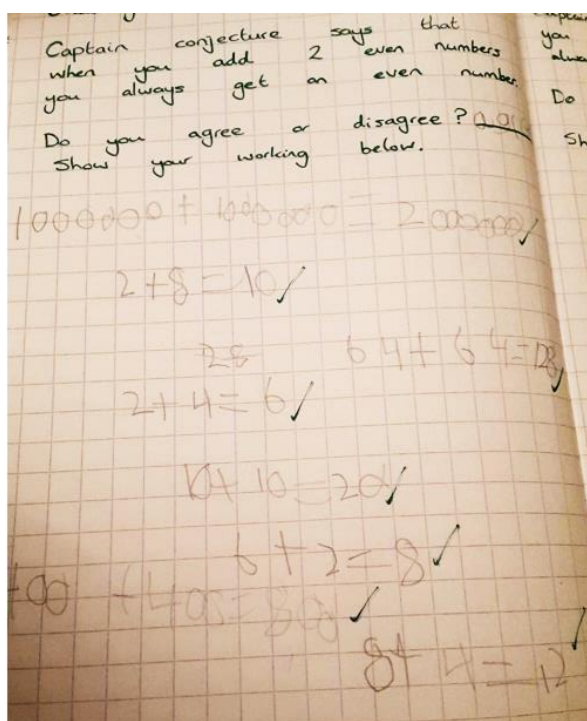 Captain conjecture says that
when you add 2 even numbers
you always get an even number.
Do you agree or disagree?
Show your working below.
1000000 + 1000000 = 2000000
2+8=10
28 64+64=128
2+4=6
10+10=20
6+2=8
8+4=12
you
Do